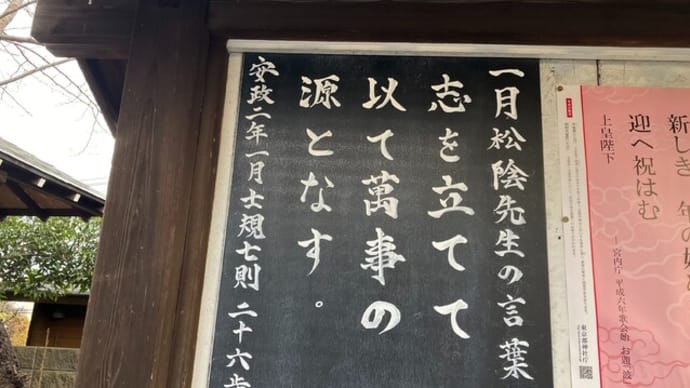 一月松陰先生の言葉
志を立てて
以て萬事の
源となす。
安政二年一月士規七則 二十六歩
新しき
迎へ祝はむ
上皇陛下
宮内庁 平成六年歌会始 お題「波
東京都神社庁